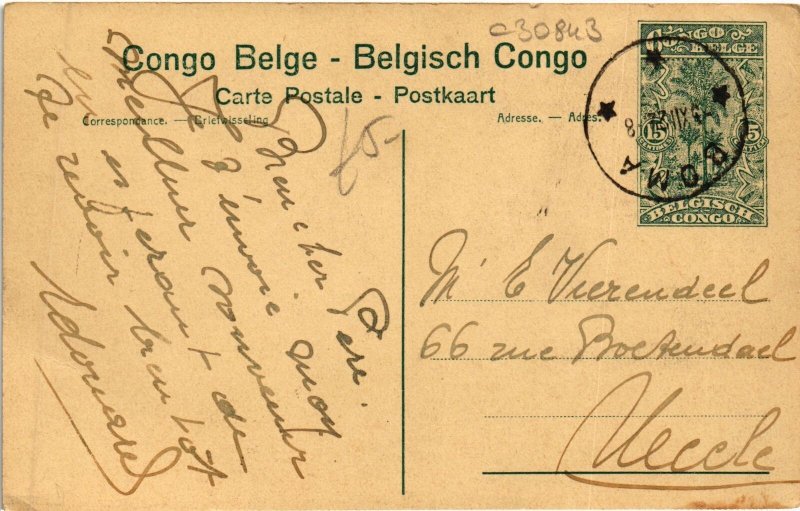 C30843
Congo Belge - Belgisch Congo
Carte Postale - Postkaart
Correspondance. — Briefwisseling
Adresse. — Adres.
CONGO BELGE
15
BELGISCH CONGO
BOMA
Mon cher Père.
Je t'envoie mon
meilleur souvenir
en espérant de
te revoir bientôt
Edouard
Mr E Vierendeel
66 rue Boetendael
Uccle